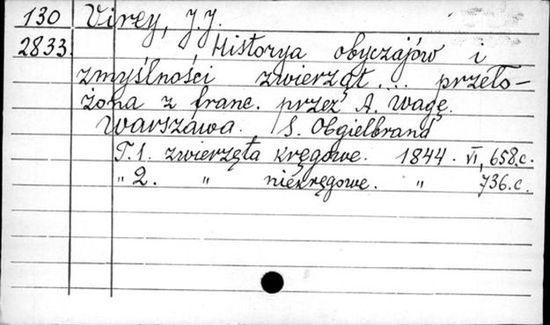 130 Virey, J.J.
2833 Historya obyczajów i
zmyślności zwierząt ... przeło-
żona z franc. przez A. Wagę.
Warszawa. S. Obgielbrand
T. 1. zwierzęta kręgowe. 1844. VI, 658.c.
" 2. " niekręgowe. " 736.c.